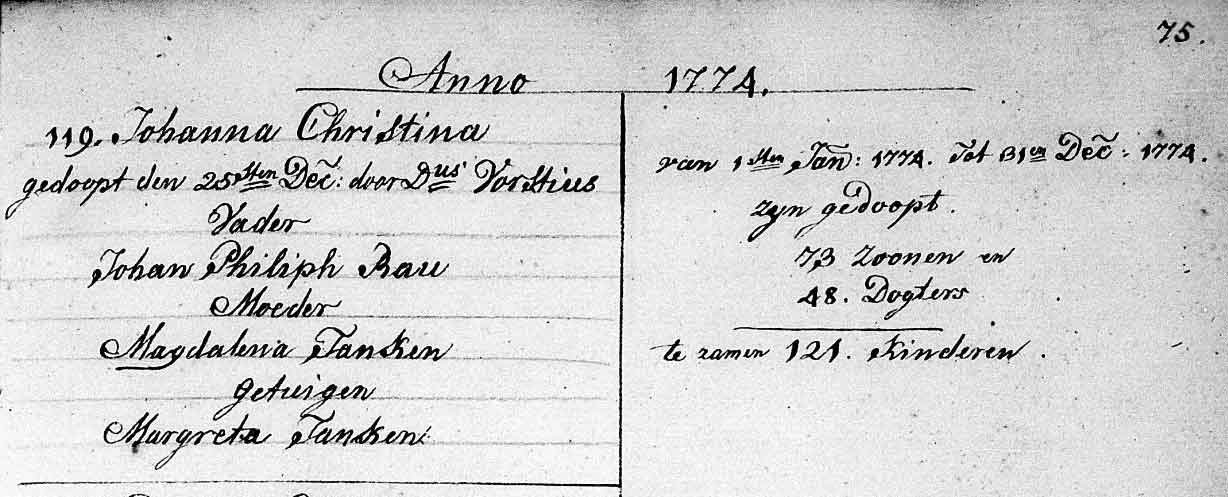 75.
Anno 1774.
119. Johanna Christina
gedoopt den 25sten Dec: door Dus Vorstius
Vader
Johan Philiph Rau
Moeder
Magdalena Jansken
getuigen
Margreta Jansken
van 1sten Jan: 1774. Tot 31en Dec: 1774.
zyn gedoopt.
73 zoonen en
48. Dogters
te zamen 121. Kinderen.